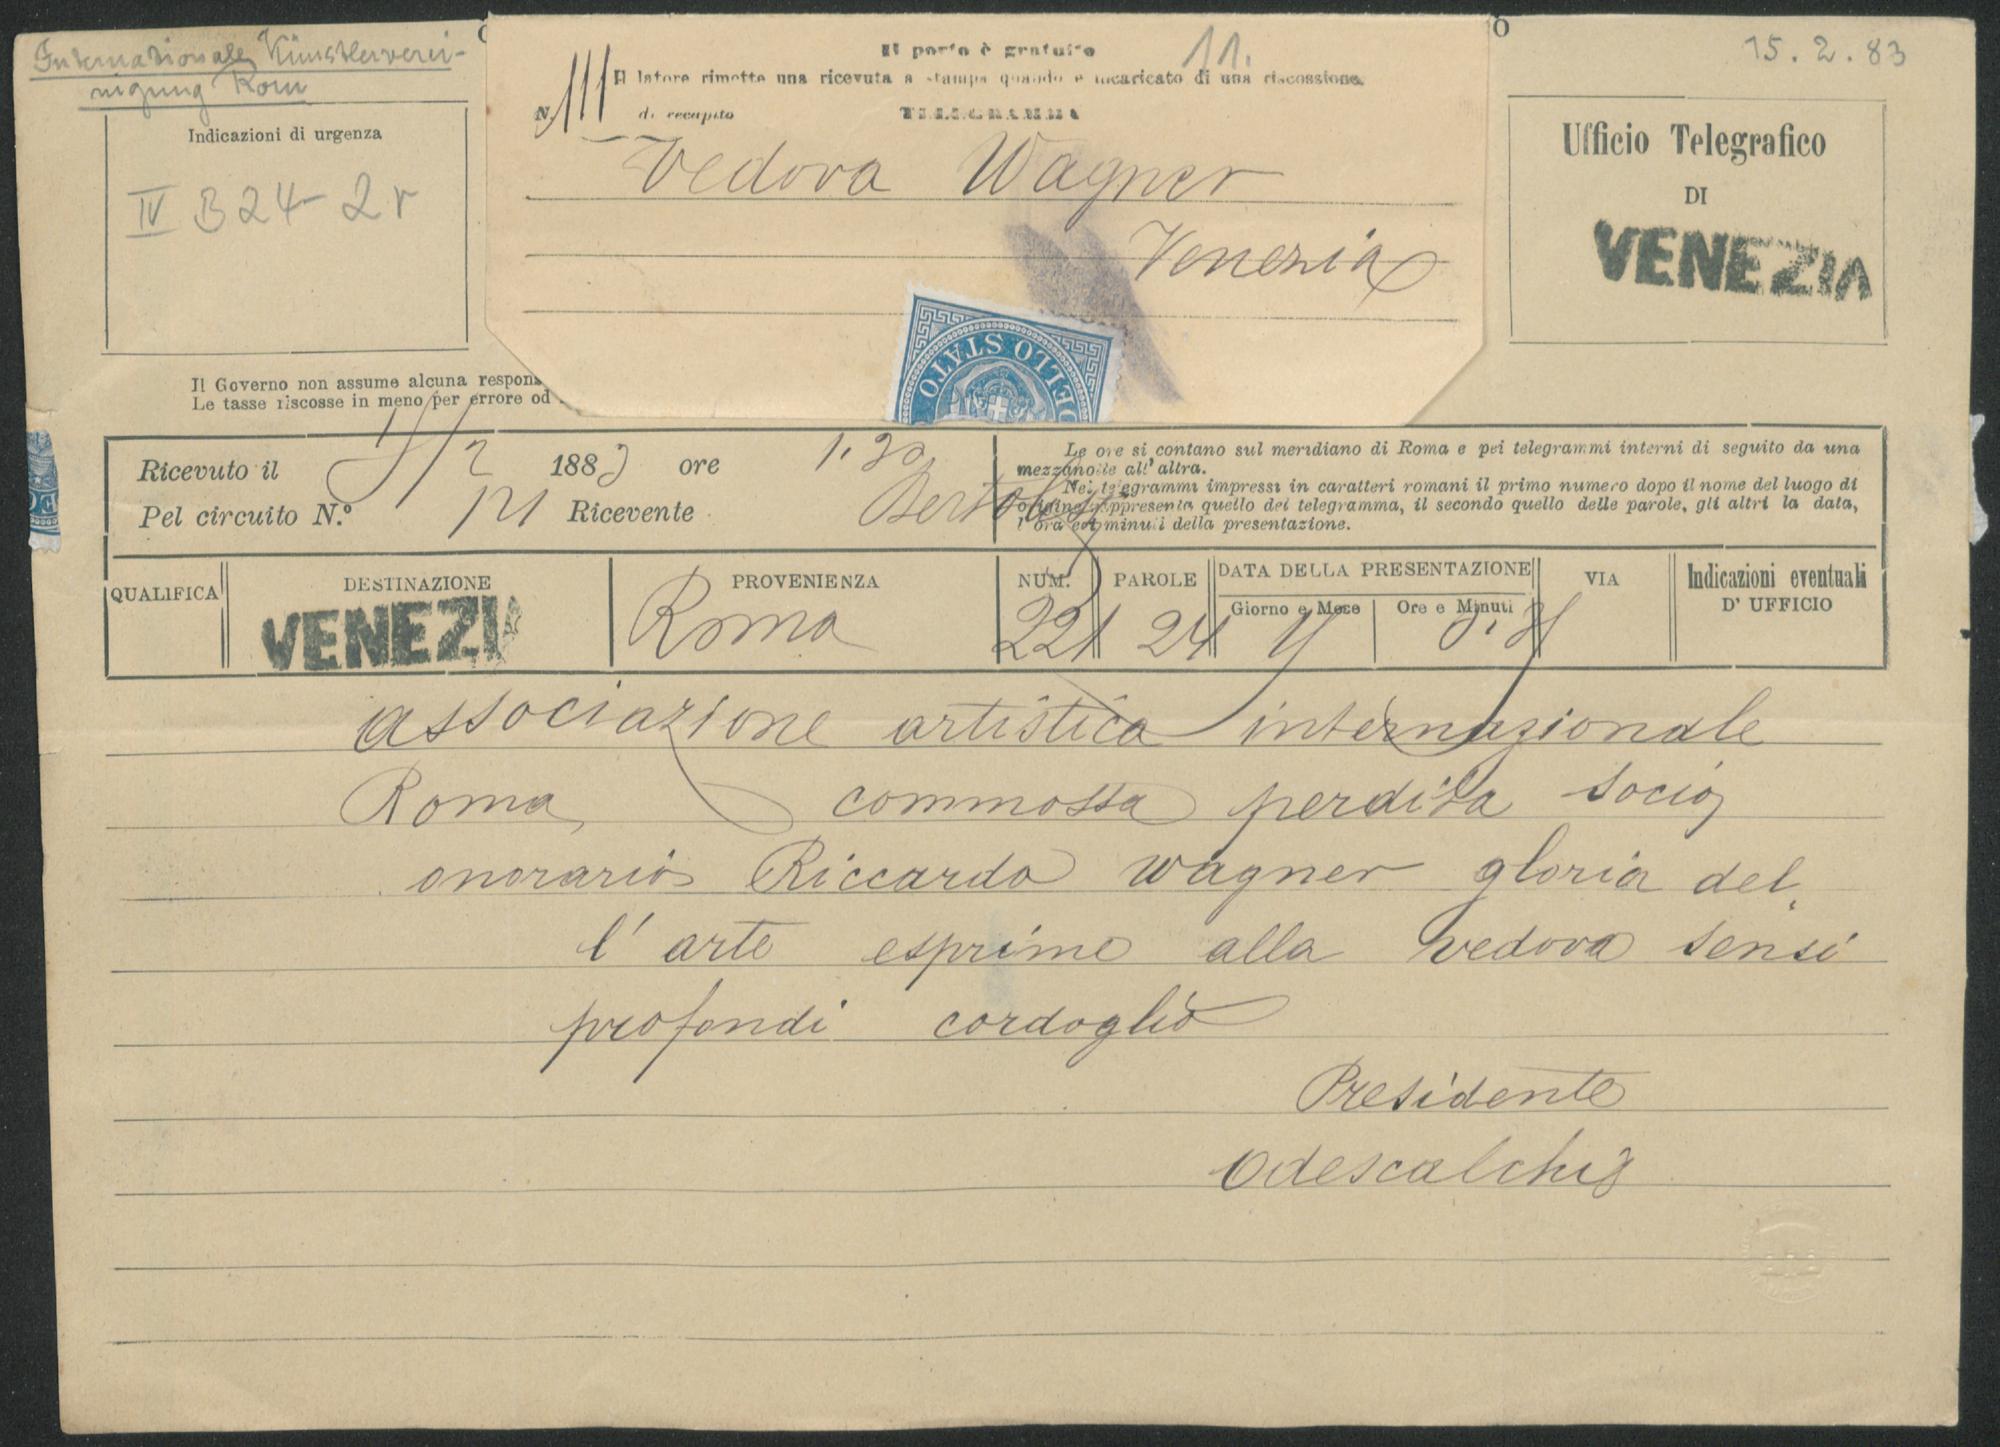 Internationale Künstlerverei-
nigung Rom
15.2.83
11.
Il porto è gratuito
Il latore rimette una ricevuta a stampa quando è incaricato di una riscossione.
N.
di recapito
TELEGRAMMA
Vedova Wagner
Venezia
Indicazioni di urgenza
IV B 24-2r
Ufficio Telegrafico
DI
VENEZIA
DELLO STATO
Il Governo non assume alcuna respons
Le tasse riscosse in meno per errore od
Ricevuto il 15/2 1883 ore 1.30
Pel circuito N.º 121 Ricevente
Le ore si contano sul meridiano di Roma e pei telegrammi interni di seguito da una
mezzanotte all' altra.
Nei telegrammi impressi in caratteri romani il primo numero dopo il nome del luogo di
origine rappresenta quello del telegramma, il secondo quello delle parole, gli altri la data,
l'ora e i minuti della presentazione.
QUALIFICA DESTINAZIONE PROVENIENZA NUM. PAROLE DATA DELLA PRESENTAZIONE VIA Indicazioni eventuali
D' UFFICIO
Giorno e Mese Ore e Minuti
VENEZI Roma 221 24
associazione artistica internazionale
Roma commossa perdita socio
onorario Riccardo wagner gloria del
l'arte esprime alla vedova sensi
profondi cordoglio
Presidente
Odescalchi